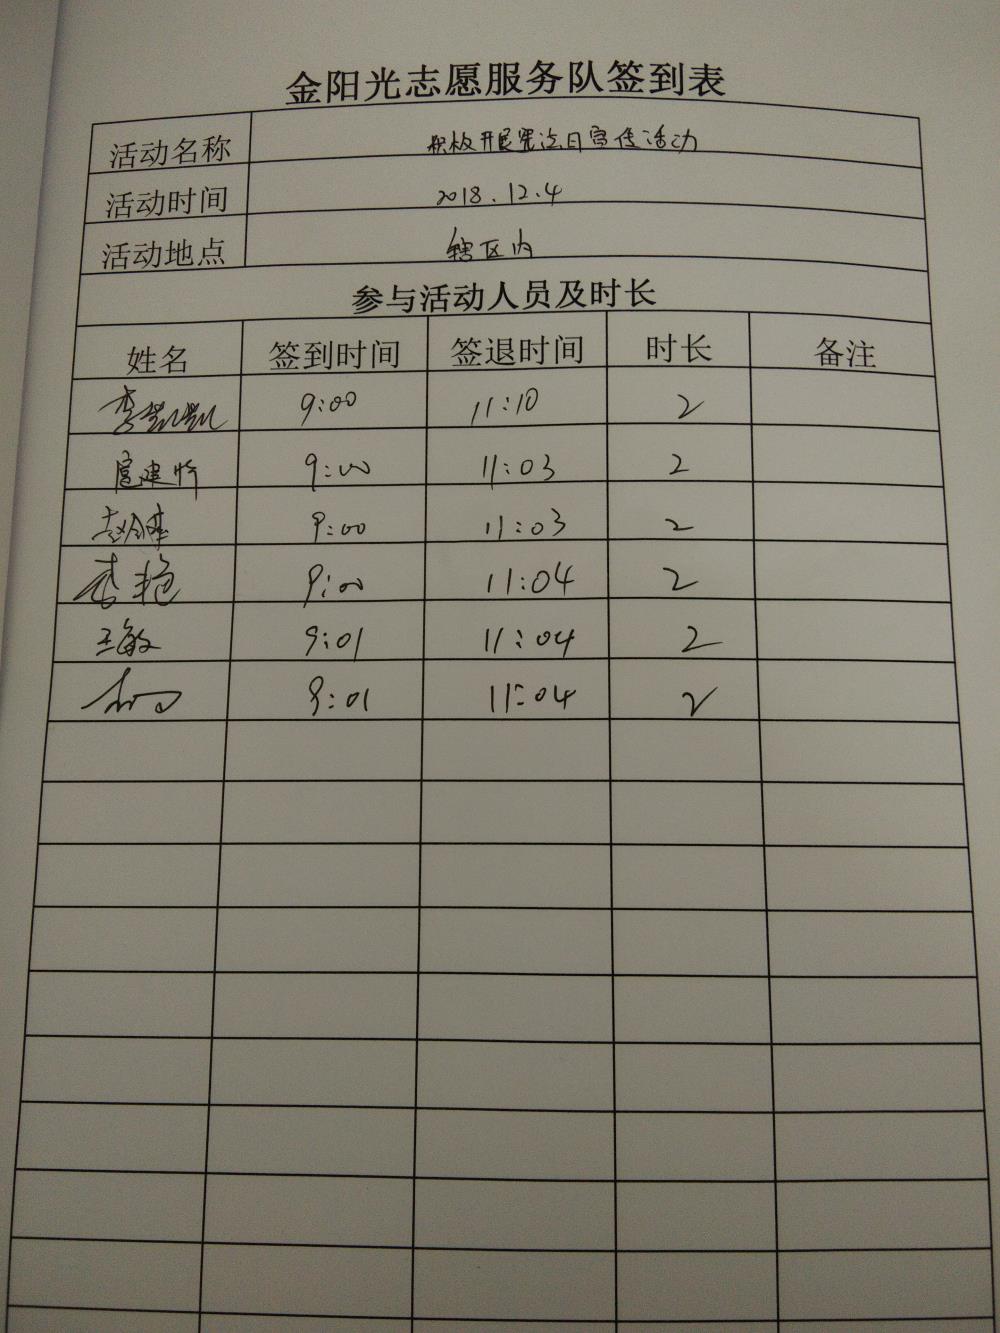 金阳光志愿服务队签到表
活动名称 积极开展宪法日宣传活动
活动时间 2018.12.4
活动地点 辖区内
参与活动人员及时长
姓名 签到时间 签退时间 时长 备注
李凯凯 9:00 11:10 2
建 9:00 11:03 2
赵 9:00 11:03 2
李艳 9:00 11:04 2
王敏 9:01 11:04 2
9:01 11:04 2